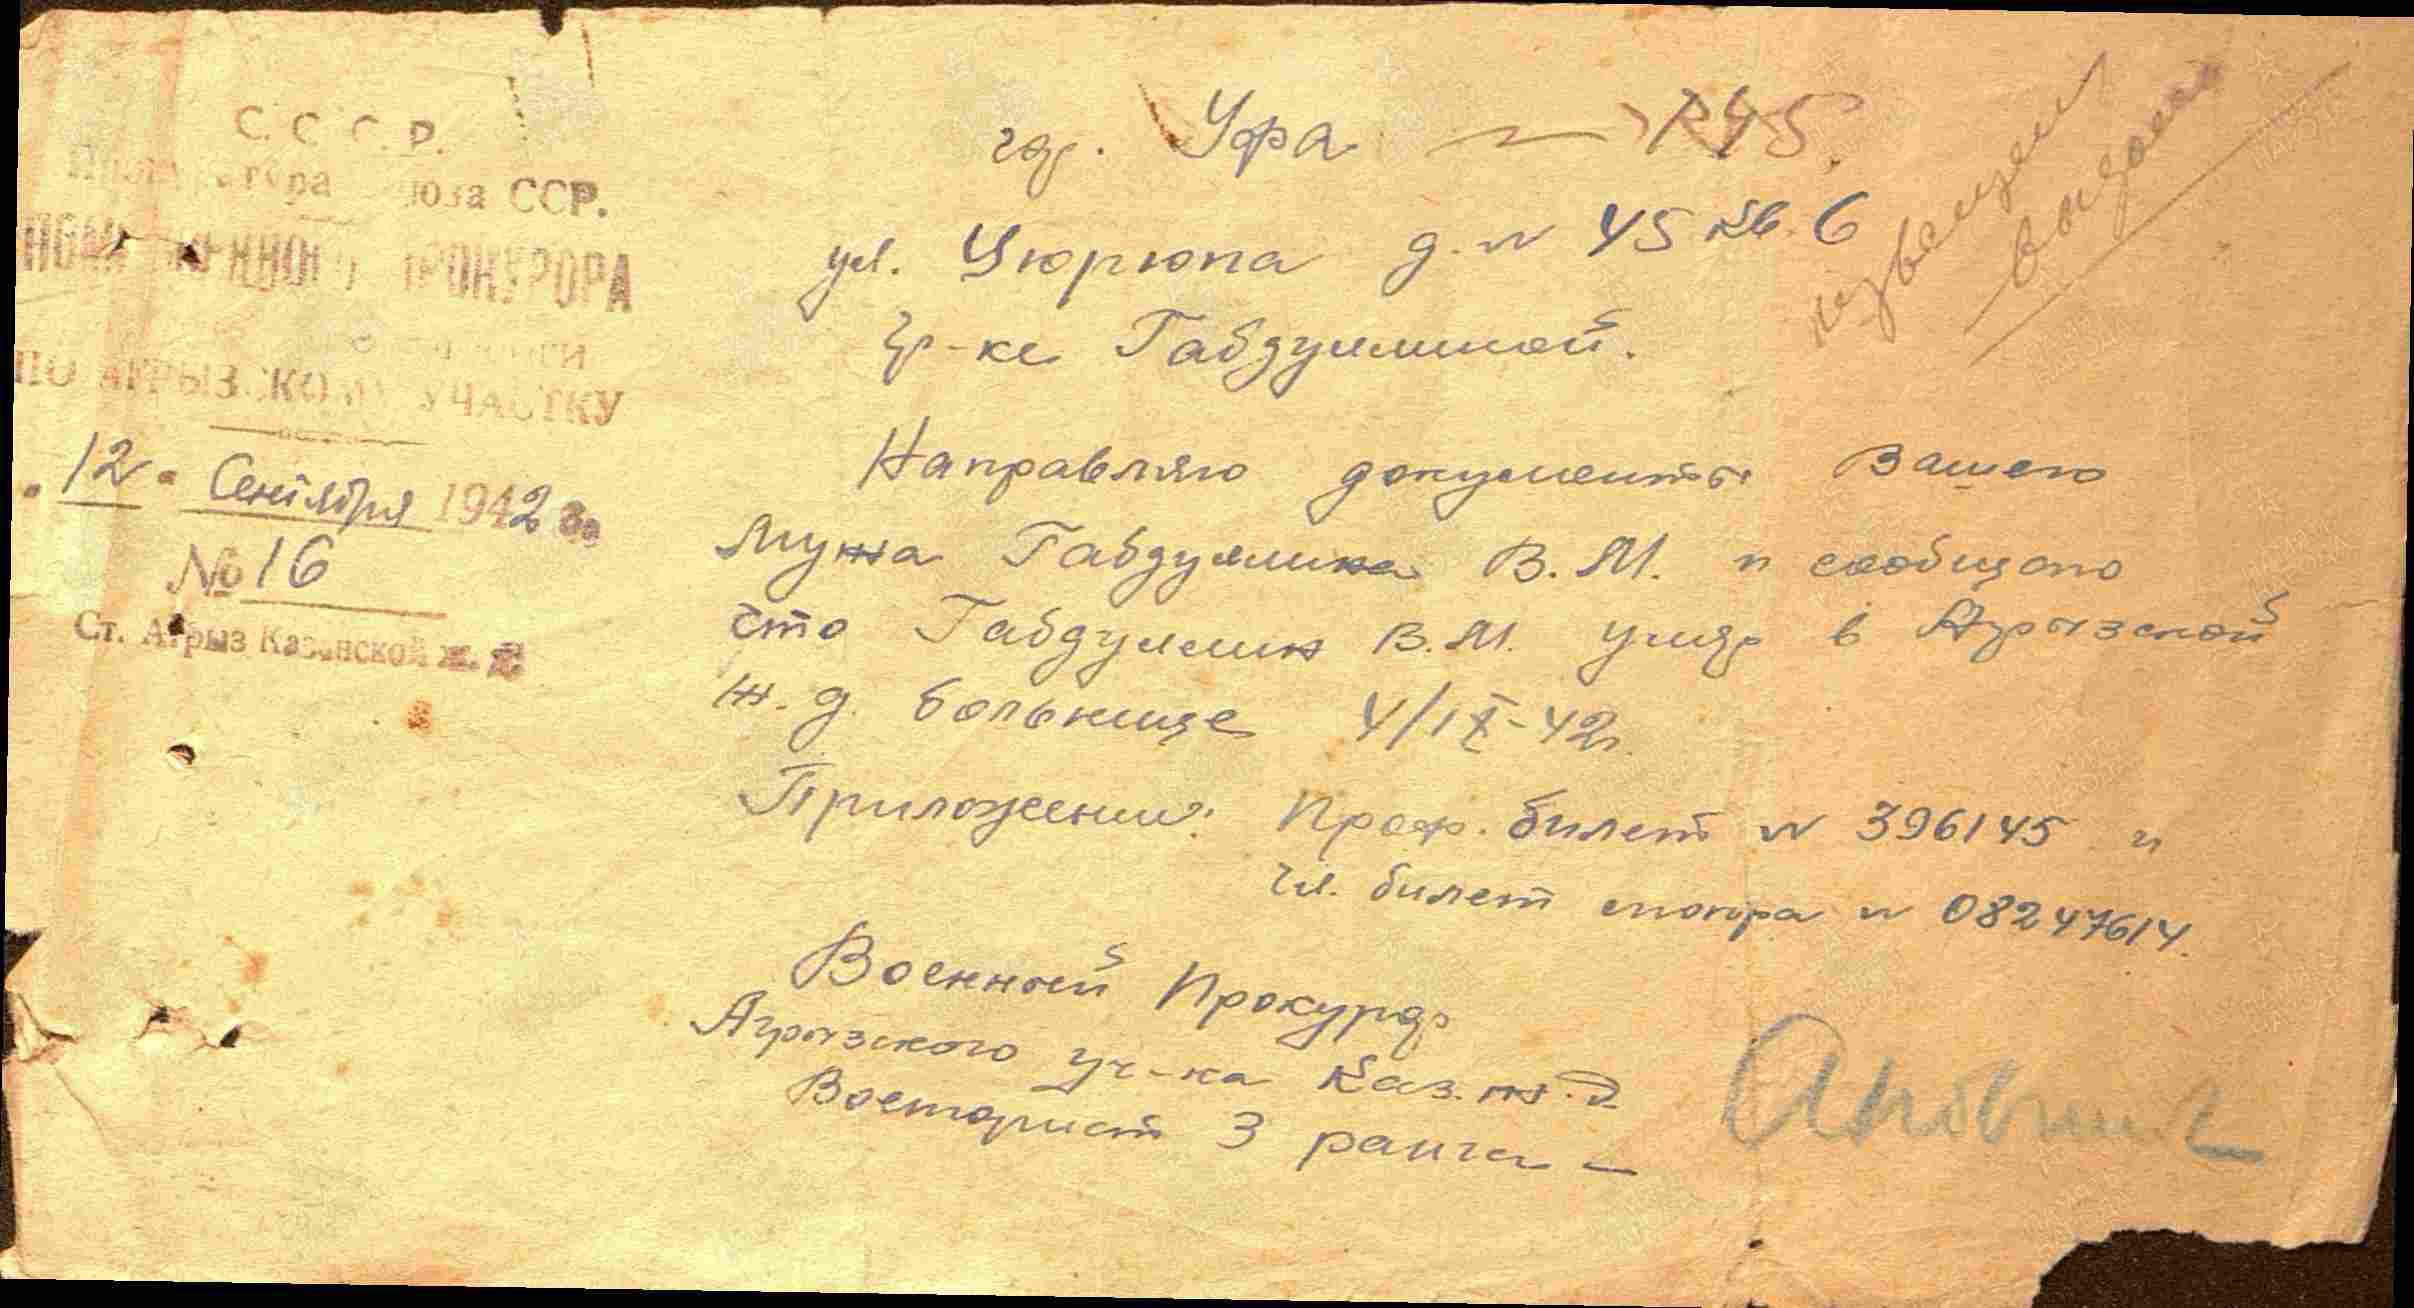 С.С.С.Р.
Прокуратура Союза ССР.
ПОМ. ВОЕННОГО ПРОКУРОРА
ПО АГРЫЗСКОМУ УЧАСТКУ
"12" Сентября 1942 г.
№ 16
Ст. Агрыз Казанской ж. д.
гор. Уфа
ул. Цюрюпа д. № 45 кв. 6
Гр-ке Габдуллиной.
извещен
выдан
Направляю документы Вашего
мужа Габдуллина В. М. и сообщаю
что Габдуллин В. М. умер в Агрызской
ж. д. больнице 4/IX-42г.
Приложение: Проф. билет № 396145 и
Чл. билет мопра № 08247614.
Военный Прокурор
Агрызского уч-ка Каз. ж. д.
Военюрист 3 ранга –